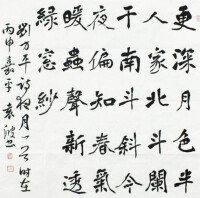 更深月色半
人家北斗闌
干南斗斜今
夜偏知春氣
暖蟲聲新透
綠窓紗
劉方平詩月一首时在
丙申嘉平袁